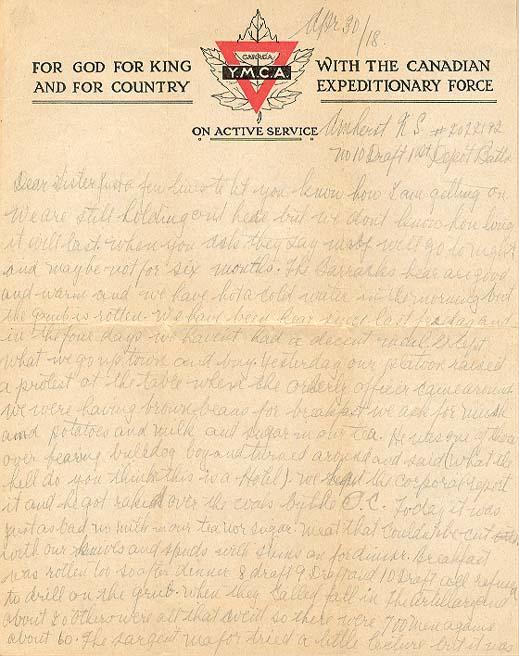 Apr 30/18
CANADA
Y.M.C.A.
FOR GOD FOR KING
AND FOR COUNTRY
WITH THE CANADIAN
EXPEDITIONARY FORCE
ON ACTIVE SERVICE
Amherst N.S.
No 10 Draft 1st Depot Battn
Dear Sister just a few lines to let you know how I am getting on
We are still holding out hear but we dont know how long
it will last. when you ask they say we will go to night
and maybe not for six months. The Barracks hear are good
and warm and we have hot & cold water in the morning but
the grub is rotten. We have been hear since last and
in the four days we havent had a decent meal except
what we go up town and buy. Yesterday our platoon raised
a protest at the table when the orderly officer came around
we were having brown beans for breakfast we ask for
and potatoes and milk and sugar in our tea. He was one of these
over bearing bulldog boys and turned around and said (what the
hell do you think this is a Hotel). we had the corporal report
it and he got raked over the coals by the O.C. Today it was
just as bad no milk in our tea nor sugar meat that couldn't be cut
with our knives and spuds with skins on for dinner. Breakfast
was rotten too so after dinner 8 draft 9 Draft and 10 Draft all refused
to drill on the grub. when they called fall in The artillery and
about 20 others were all that went so there were 700 men againe
about 60. The sargent major tried a little lecture but it was